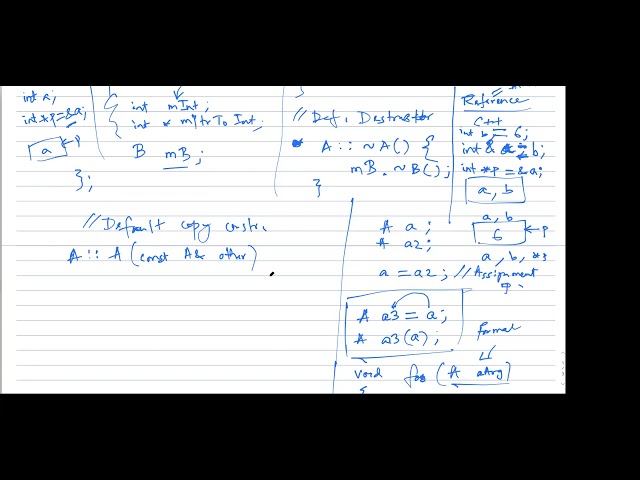 int a;
int *p=&a;
a
p
int mInt;
int * mPtrTo Int;
B mB;
};
// Def. Destructor
A :: ~A() {
mB.~B();
}
Reference
C++
int b = 6;
int & a = b;
int *p = &a;
a, b
a, b
6
p
a, b, *p
// Default copy constr.
A :: A (const A& other)
A a;
A a2;
a = a2; // Assignment
A a3 = a;
A a3(a);
formal
void foo (A aArg)